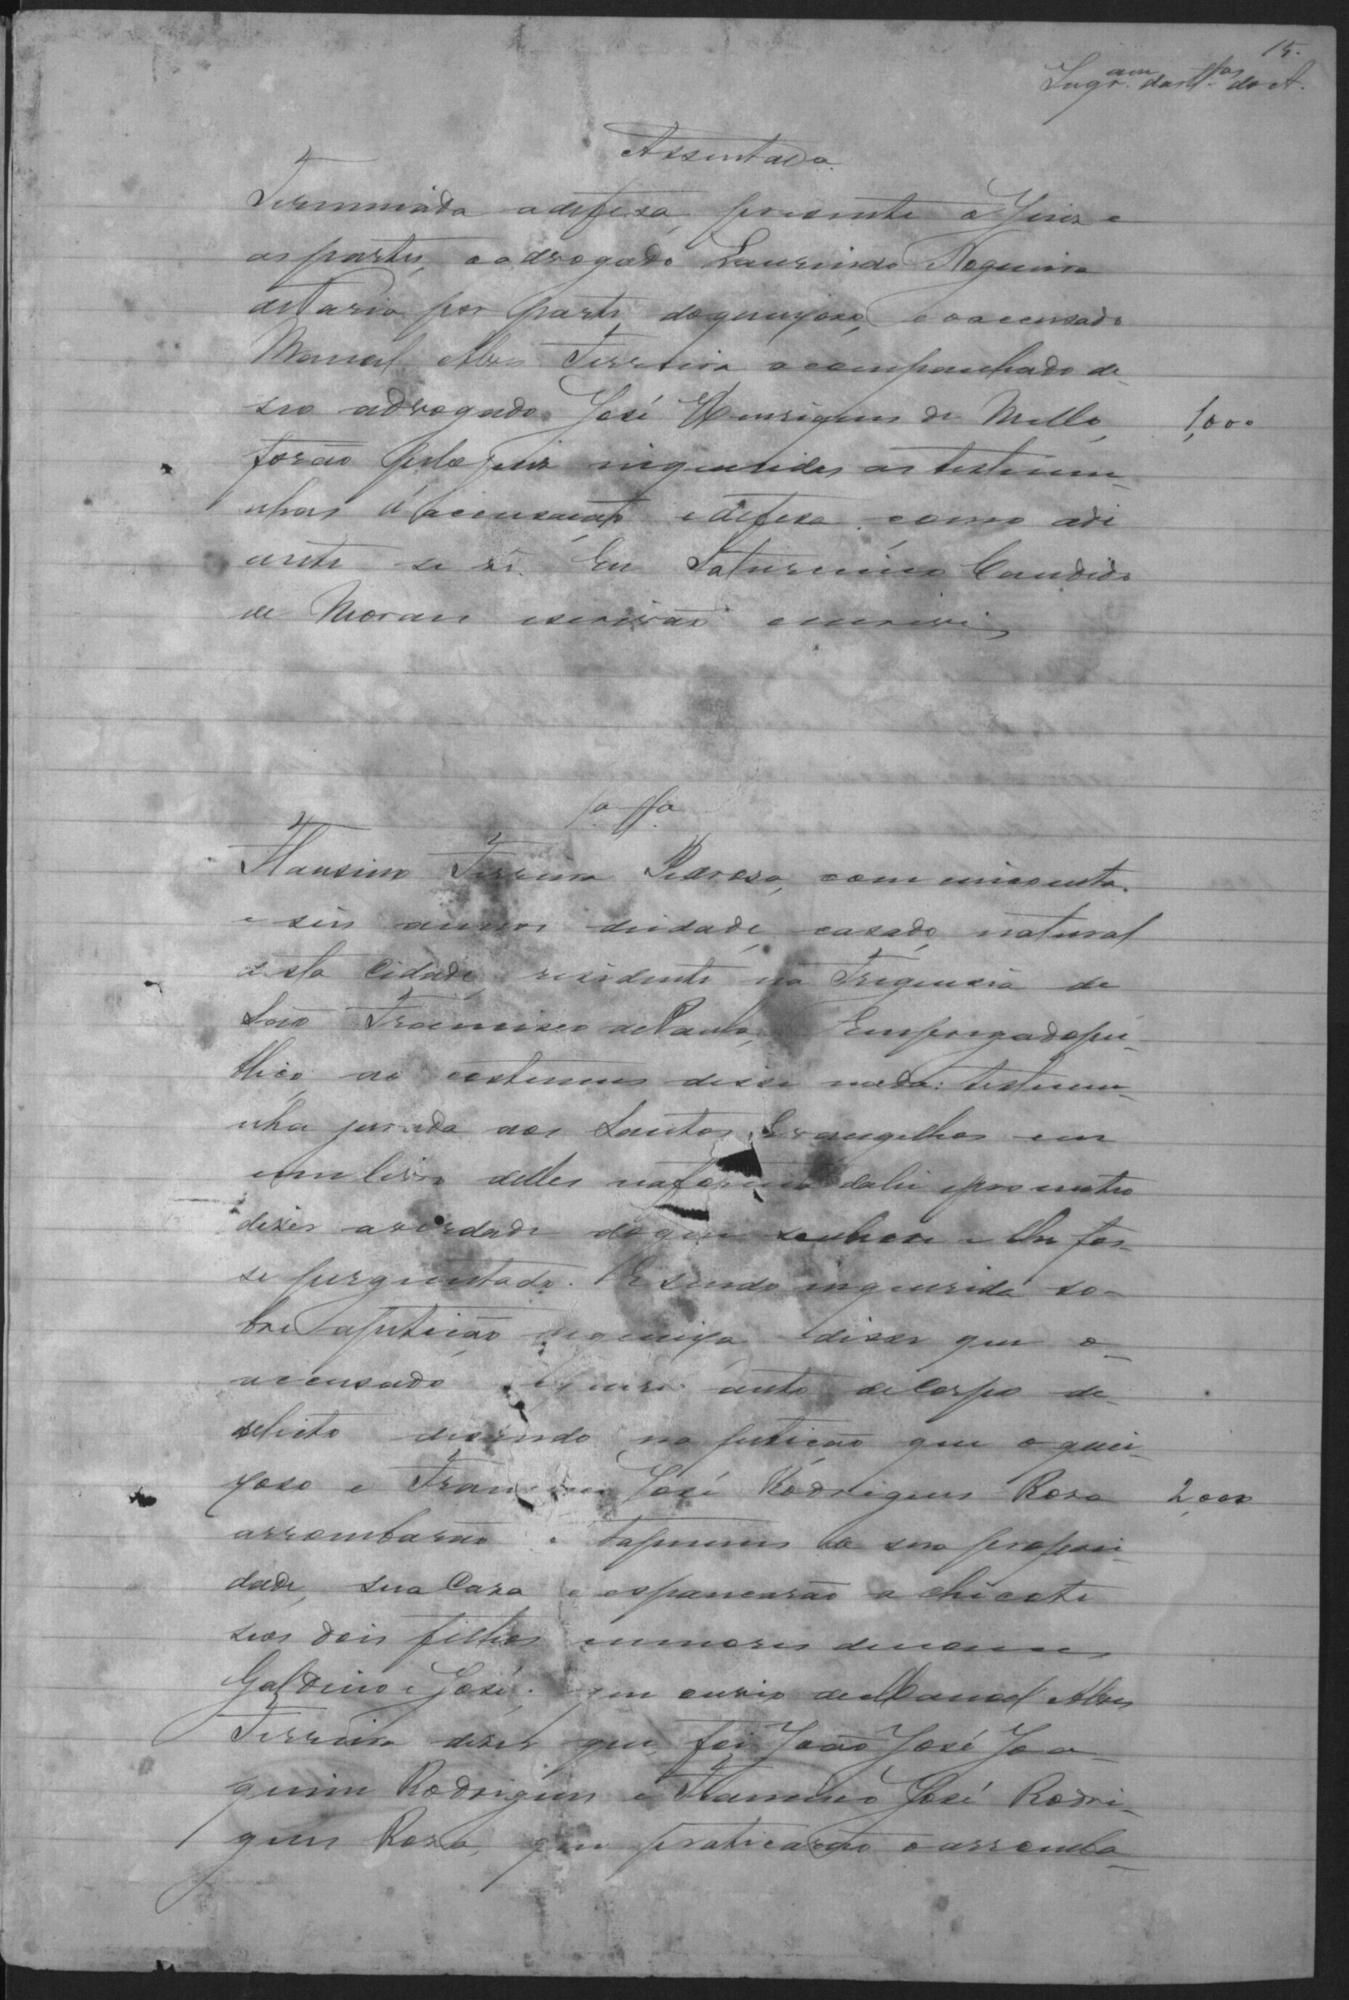 15.
Inqr.am das tt.as do A.
Assentada
Terminada a defesa, presente o Juiz e
as partes, o advogado Laurindo Nogueira
de Faria por parte do queixoso, e o accusado
Manoel Alves Ferreira acompanhado de
seo advogado José Henriques de Mello, 1,000
forão pelo juiz inqueridas as testemu-
nhas d'accusação e defesa como adi
ante se vê. Eu Saturnino Candido
de Moraes escrivão escrevi
1.a tt.a
Flausino Ferreira Pedrosa, com cincoenta
e seis annos de idade, casado, natural
desta Cidade, residente na Freguesia de
São Francisco de Paula, Empregado pu-
blico, ao costumes disse nada: testemu-
nha jurada aos Santos Evangelhos em
um livro delles na forma da lei e prometteo
dizer a verdade do que soubesse e lhe fos-
se perguntado. E sendo inquerida so-
bre a petição de queixa disse que o
accusado requereo auto de Corpo de
delicto disendo na petição que o quei-
xoso e José Rodrigues Rosa 2,000
arrombarão tapumes de sua proprie-
dade, sua Casa e espancarão a chicote
seos dois filhos menores de nomes
Galdino e José; que ouvio de Manoel Alves
Ferreira dizer que foi João José Joa-
quim Rodrigues e José Rodri-
gues Rosa, que praticarão o arromba-